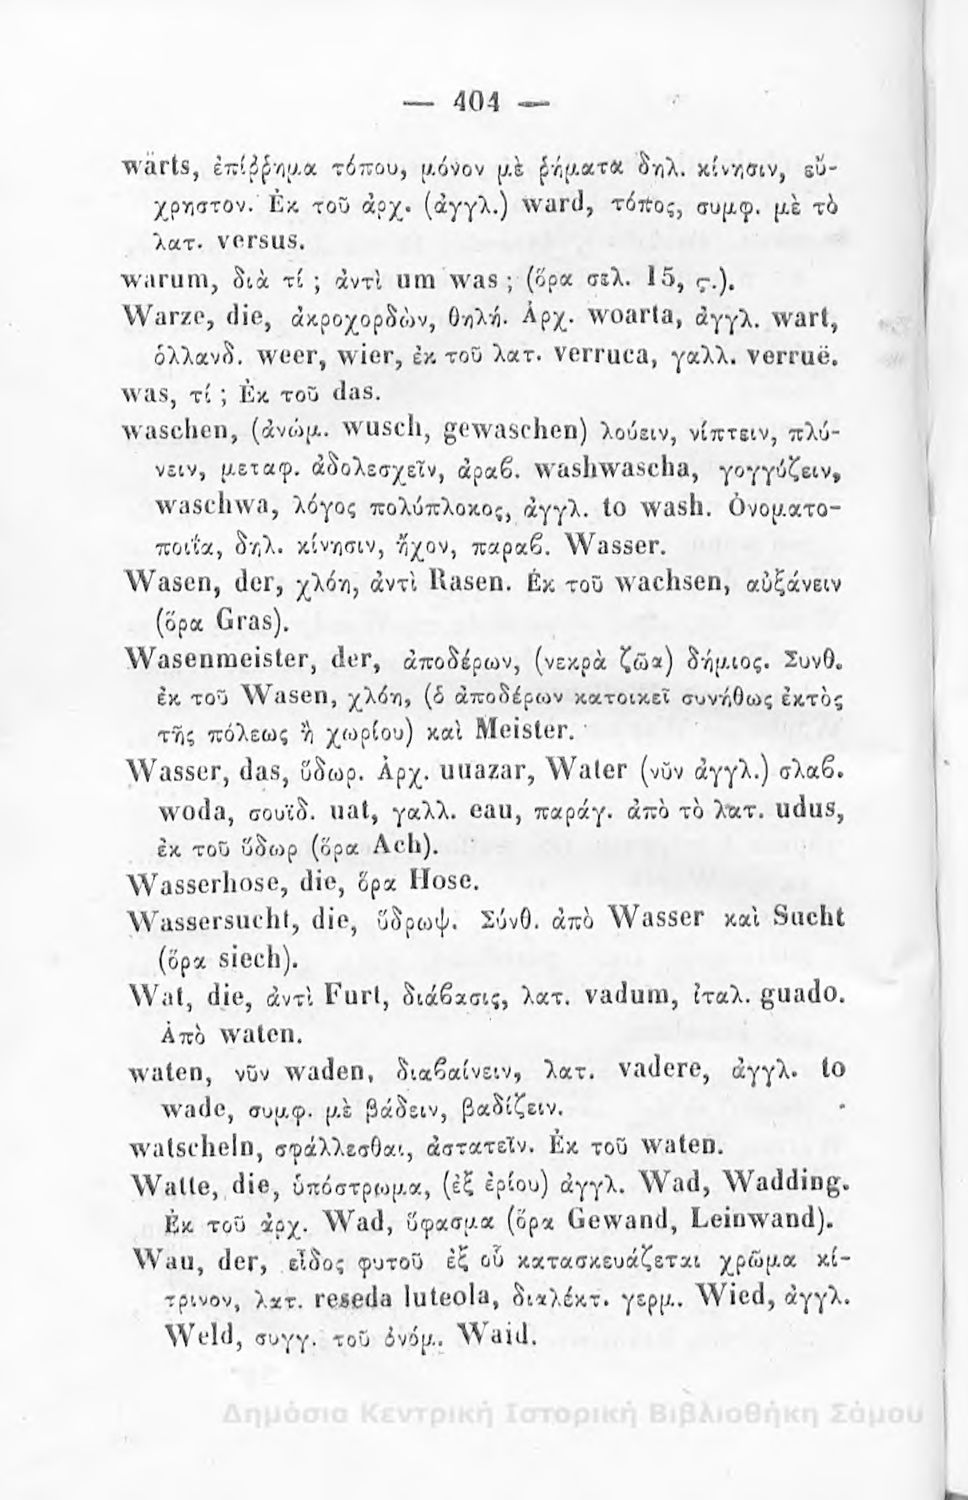 — 404 —
wärts, ἐπίῤῥημα τόπου, μόνον μὲ ῥήματα δηλ. κίνησιν, εὔ-
χρηστον. Ἐκ τοῦ ἀρχ. (ἀγγλ.) ward, τόπος, συμφ. μὲ τὸ
λατ. versus.
warum, διὰ τί ; ἀντὶ um was ; (ὅρα σελ. 15, ς.).
Warze, die, ἀκροχορδὼν, θηλή. Ἀρχ. woarta, ἀγγλ. wart,
ὁλλανδ. weer, wier, ἐκ τοῦ λατ. verruca, γαλλ. verruë.
was, τί ; Ἐκ τοῦ das.
waschen, (ἀνώμ. wusch, gewaschen) λούειν, νίπτειν, πλύ-
νειν, μεταφ. ἀδολεσχεῖν, ἀραβ. washwascha, γογγύζειν,
waschwa, λόγος πολύπλοκος, ἀγγλ. to wash. Ὀνοματο-
ποιΐα, δηλ. κίνησιν, ἦχον, παραβ. Wasser.
Wasen, der, χλόη, ἀντὶ Rasen. Ἐκ τοῦ wachsen, αὐξάνειν
(ὅρα Gras).
Wasenmeister, der, ἀποδέρων, (νεκρὰ ζῶα) δήμιος. Συνθ.
ἐκ τοῦ Wasen, χλόη, (ὁ ἀποδέρων κατοικεῖ συνήθως ἐκτὸς
τῆς πόλεως ἢ χωρίου) καὶ Meister.
Wasser, das, ὕδωρ. Ἀρχ. uuazar, Water (νῦν ἀγγλ.) σλαβ.
woda, σουϊδ. uat, γαλλ. eau, παράγ. ἀπὸ τὸ λατ. udus,
ἐκ τοῦ ὕδωρ (ὅρα Ach).
Wasserhose, die, ὅρα Hose.
Wassersucht, die, ὕδρωψ. Σύνθ. ἀπὸ Wasser καὶ Sucht
(ὅρα siech).
Wat, die, ἀντὶ Furt, διάβασις, λατ. vadum, ἰταλ. guado.
Ἀπὸ waten.
waten, νῦν waden, διαβαίνειν, λατ. vadere, ἀγγλ. to
wade, συμφ. μὲ βάδειν, βαδίζειν.
watscheln, σφάλλεσθαι, ἀστατεῖν. Ἐκ τοῦ waten.
Watte, die, ὑπόστρωμα, (ἐξ ἐρίου) ἀγγλ. Wad, Wadding.
Ἐκ τοῦ ἀρχ. Wad, ὕφασμα (ὅρα Gewand, Leinwand).
Wau, der, εἶδος φυτοῦ ἐξ οὗ κατασκευάζεται χρῶμα κί-
τρινον, λατ. reseda luteola, διαλέκτ. γερμ. Wied, ἀγγλ.
Weld, συγγ. τοῦ ὀνόμ. Waid.
Δημόσια Κεντρική Ιστορική Βιβλιοθήκη Σάμου